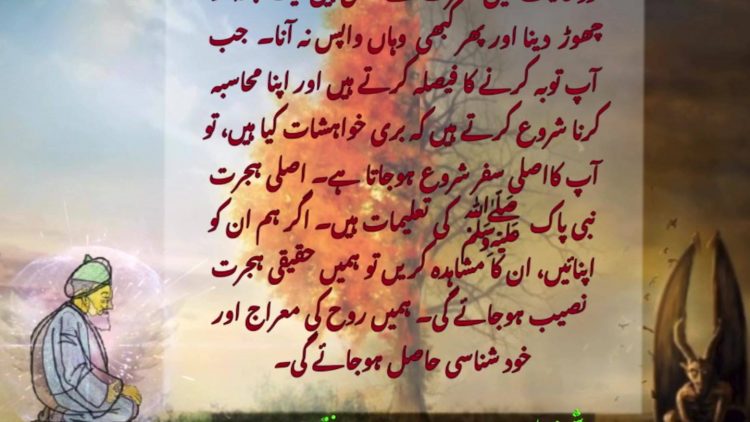 چھوڑ دینا اور پھر کبھی وہاں واپس نہ آنا۔ جب
آپ توبہ کرنے کا فیصلہ کرتے ہیں اور اپنا محاسبہ
کرنا شروع کرتے ہیں کہ بری خواہشات کیا ہیں، تو
آپ کا اصلی سفر شروع ہوجاتا ہے۔ اصلی ہجرت
نبی پاک صلى الله عليه وسلم کی تعلیمات ہیں۔ اگر ہم ان کو
اپنائیں، ان کا مشاہدہ کریں تو ہمیں حقیقی ہجرت
نصیب ہوجائے گی۔ ہمیں روح کی معراج اور
خود شناسی حاصل ہوجائے گی۔